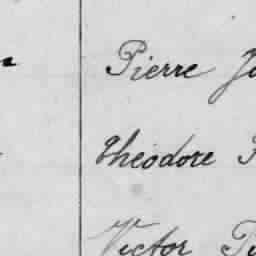 Pierre
Theodore
Victor